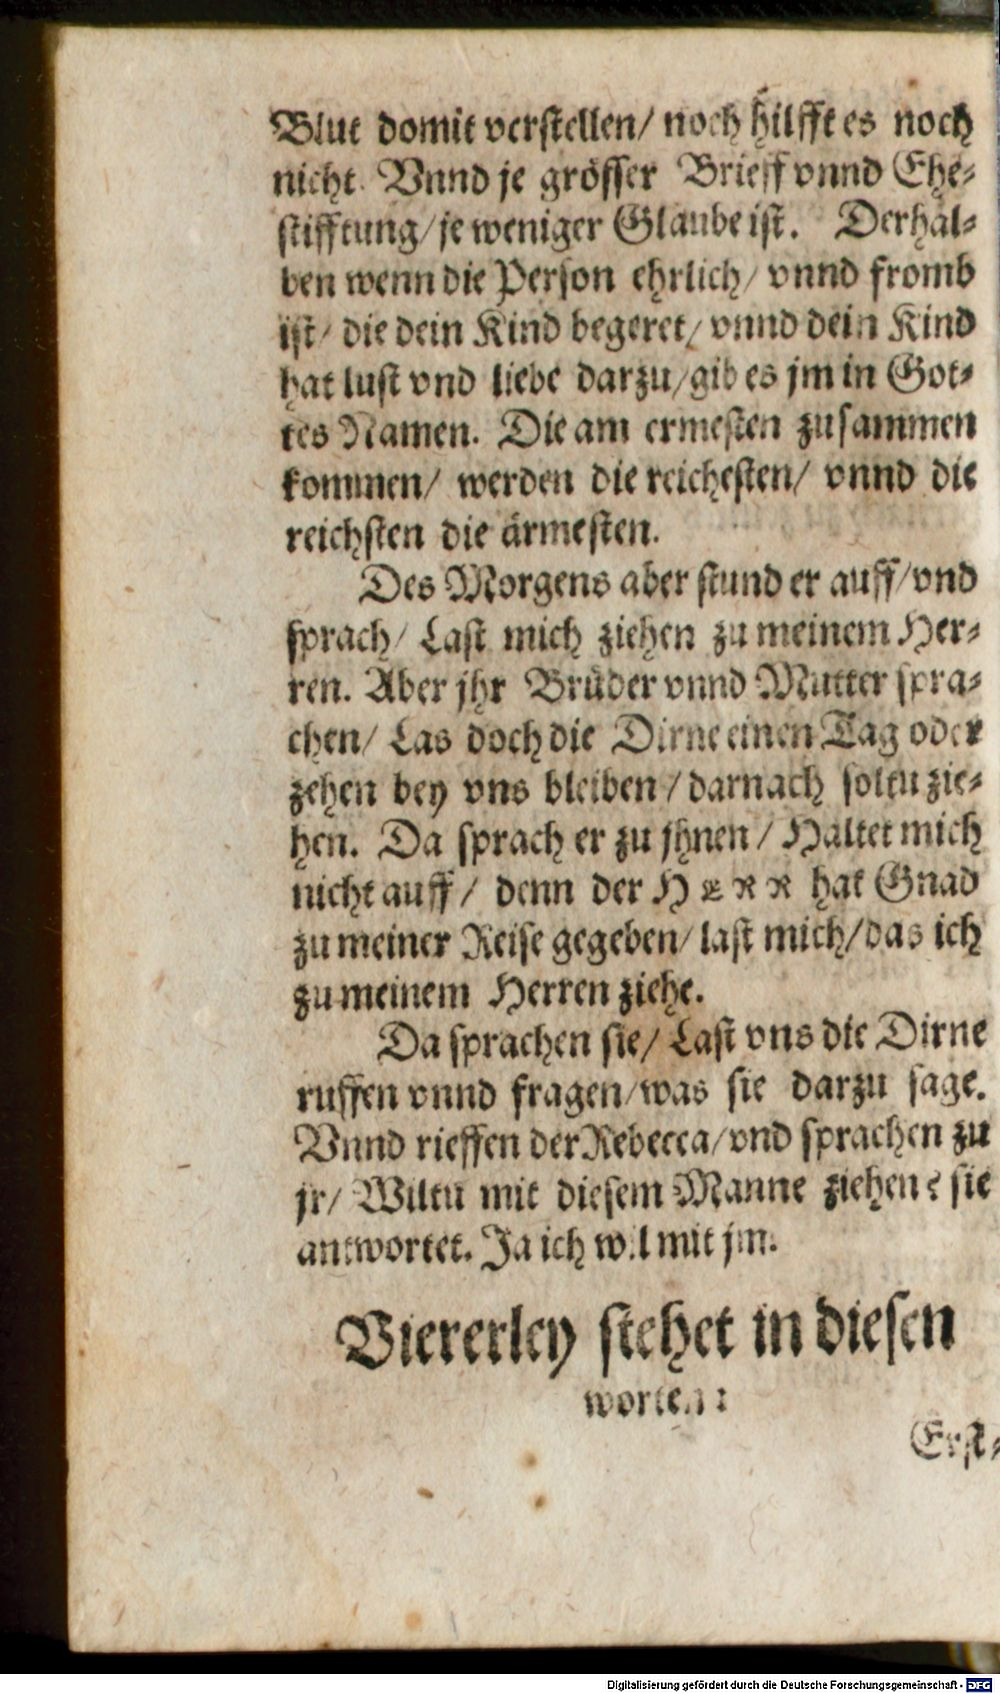 Blut domit verstellen/ noch hilfft es noch
nicht. Vnnd je grösser Brieff vnnd Ehe-
stifftung/ je weniger Glaube ist. Derhal-
ben wenn die Person ehrlich/ vnnd fromb
ist/ die dein Kind begeret/ vnnd dein Kind
hat lust vnd liebe darzu/ gib es jm in Got-
tes Namen. Die am ermesten zusammen
kommen/ werden die reichesten/ vnnd die
reichsten die ärmesten.
Des Morgens aber stund er auff/ vnd
sprach/ Last mich ziehen zu meinem Her-
ren. Aber jhr Brüder vnnd Mutter spra-
chen/ Las doch die Dirne einen Tag oder
zehen bey vns bleiben/ darnach soltu zie-
hen. Da sprach er zu jhnen/ Haltet mich
nicht auff/ denn der HERR hat Gnad
zu meiner Reise gegeben/ last mich/ das ich
zu meinem Herren ziehe.
Da sprachen sie/ Last vns die Dirne
ruffen vnnd fragen/ was sie darzu sage.
Vnnd rieffen der Rebecca/ vnd sprachen zu
jr/ Wiltu mit diesem Manne ziehen? sie
antwortet. Ja ich wil mit jm.
Viererley stehet in diesen
worten:
Erst-
Digitalisierung gefördert durch die Deutsche Forschungsgemeinschaft - DFG